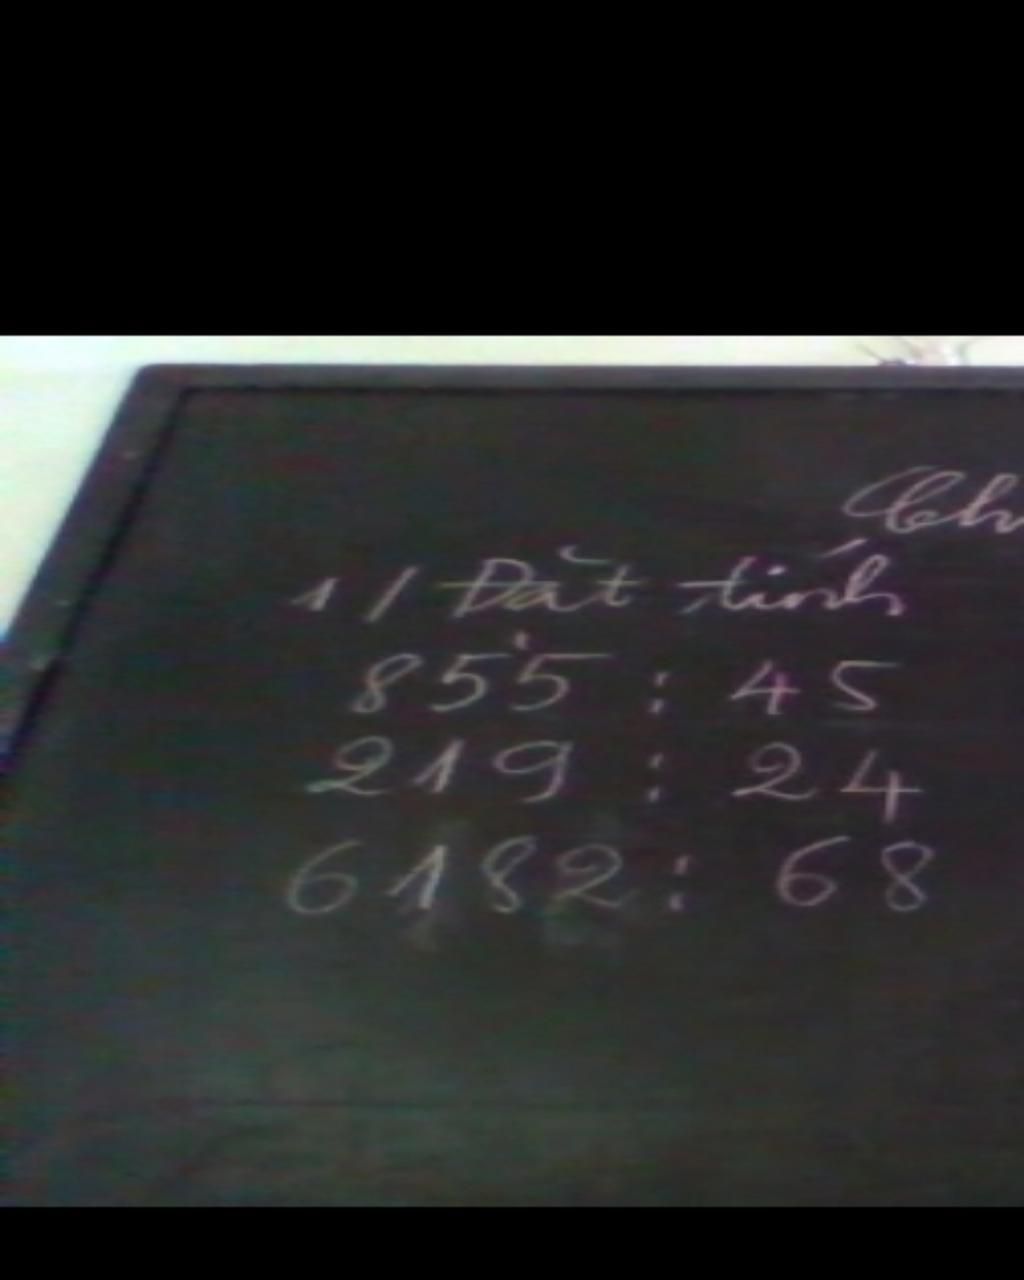 Ch
1/ Đặt tính
855 : 45
219 : 24
6182 : 68